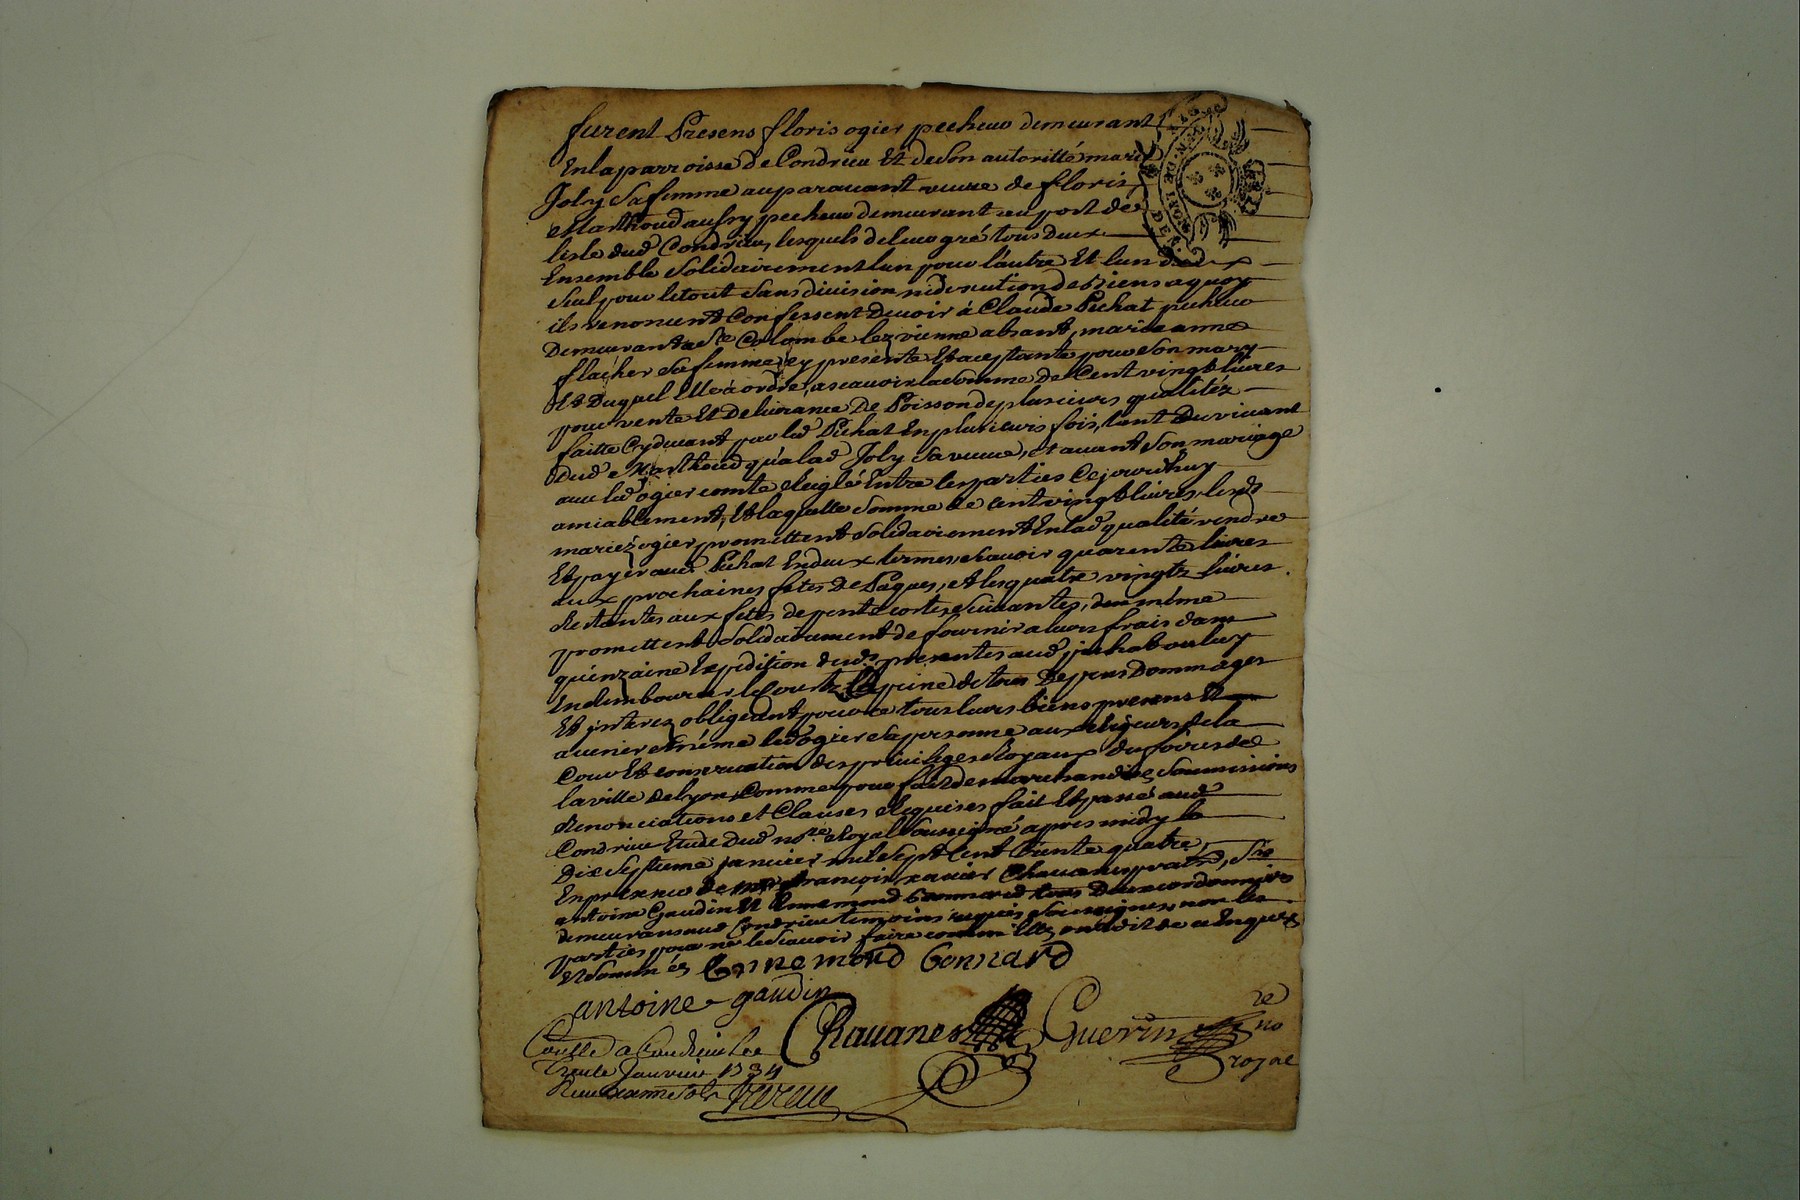 furent Presens floris ogier pecheur demeurant
En la parroisse de Condrieu Et de Son autoritté marie
Joly Sa femme auparauant veuve de floris
Marthoud aussy pecheur demeurant au port de
lisle dud Condrieu, lesquels de leur gré tous deux
Ensemble Solidairement lun pour lautre Et lun deux
Seul pour le tout Sans diuision de Biens a quoy
ils renoncent Confessent Deuoir à Claude Pichat pecheur
Demeurant a Ste Colombe lez vienne absant, marie anne
flacher Sa femme jcy presente Et aceptante pour Son mary
Et Duquel Elle a ordre, ascauoir la Somme de Cent vingt liures
pour vente Et Deliurance De Poisson de plusieurs qualitéz
faitte Cy deuant par led Pichat En plusieurs fois, tant Du viuant
Dud Marthoud qu'a lad Joly Sa veuue, et auant Son mariage
auec led ogier comte reglé Entre les parties Ce jourdhuy
amiablement, Et laquelle Somme de Cent vingt liures lesds
mariéz ogier promettent Solidairement En lad qualité rendre
Et payer aud Pichat En deux termes, Scauoir quarente liures
aux prochaines fetes De Paques, et les quatre vingtz liures
Restantes aux fetes de pentecostes Suiuantes, de même
promettent Solidairement de fournir a leurs frais dans
quinzaine Expedition desds presentes aud pichat ou luy
En Rembourcer le Coust a peine de tous Depens Dommages
Et jnterez obligeant pour ce tous leurs biens presens Et
auenir Et même led ogier Sa personne aux rigueurs de la
Cour Et conseruation des priuileges Royaux des foires de
la ville de Lyon, Comme pour fait de marchandise Soumissions
Renonciations et Clauses Requises fait Et passé aud
Condrieu Etude Dud nore Royal Soussigné apres midy le
Dix Septieme januier mil Sept Cent trente quatre,
En presence de françois xauier Chauanes, Sre
antoine Gaudin Et Ennemond Gonnard tous Deux cordonniers
demeurans aud Condrieu temoins requis Soussignes non les
parties pour ne le Scauoir faire comme Elles ont dit de ce Enquis
Et Sommées Ennemond Gonnard
antoine gaudin
Chauanes Guerin no re
royal
Conlle a Condrieu Le
trente Januier 1734